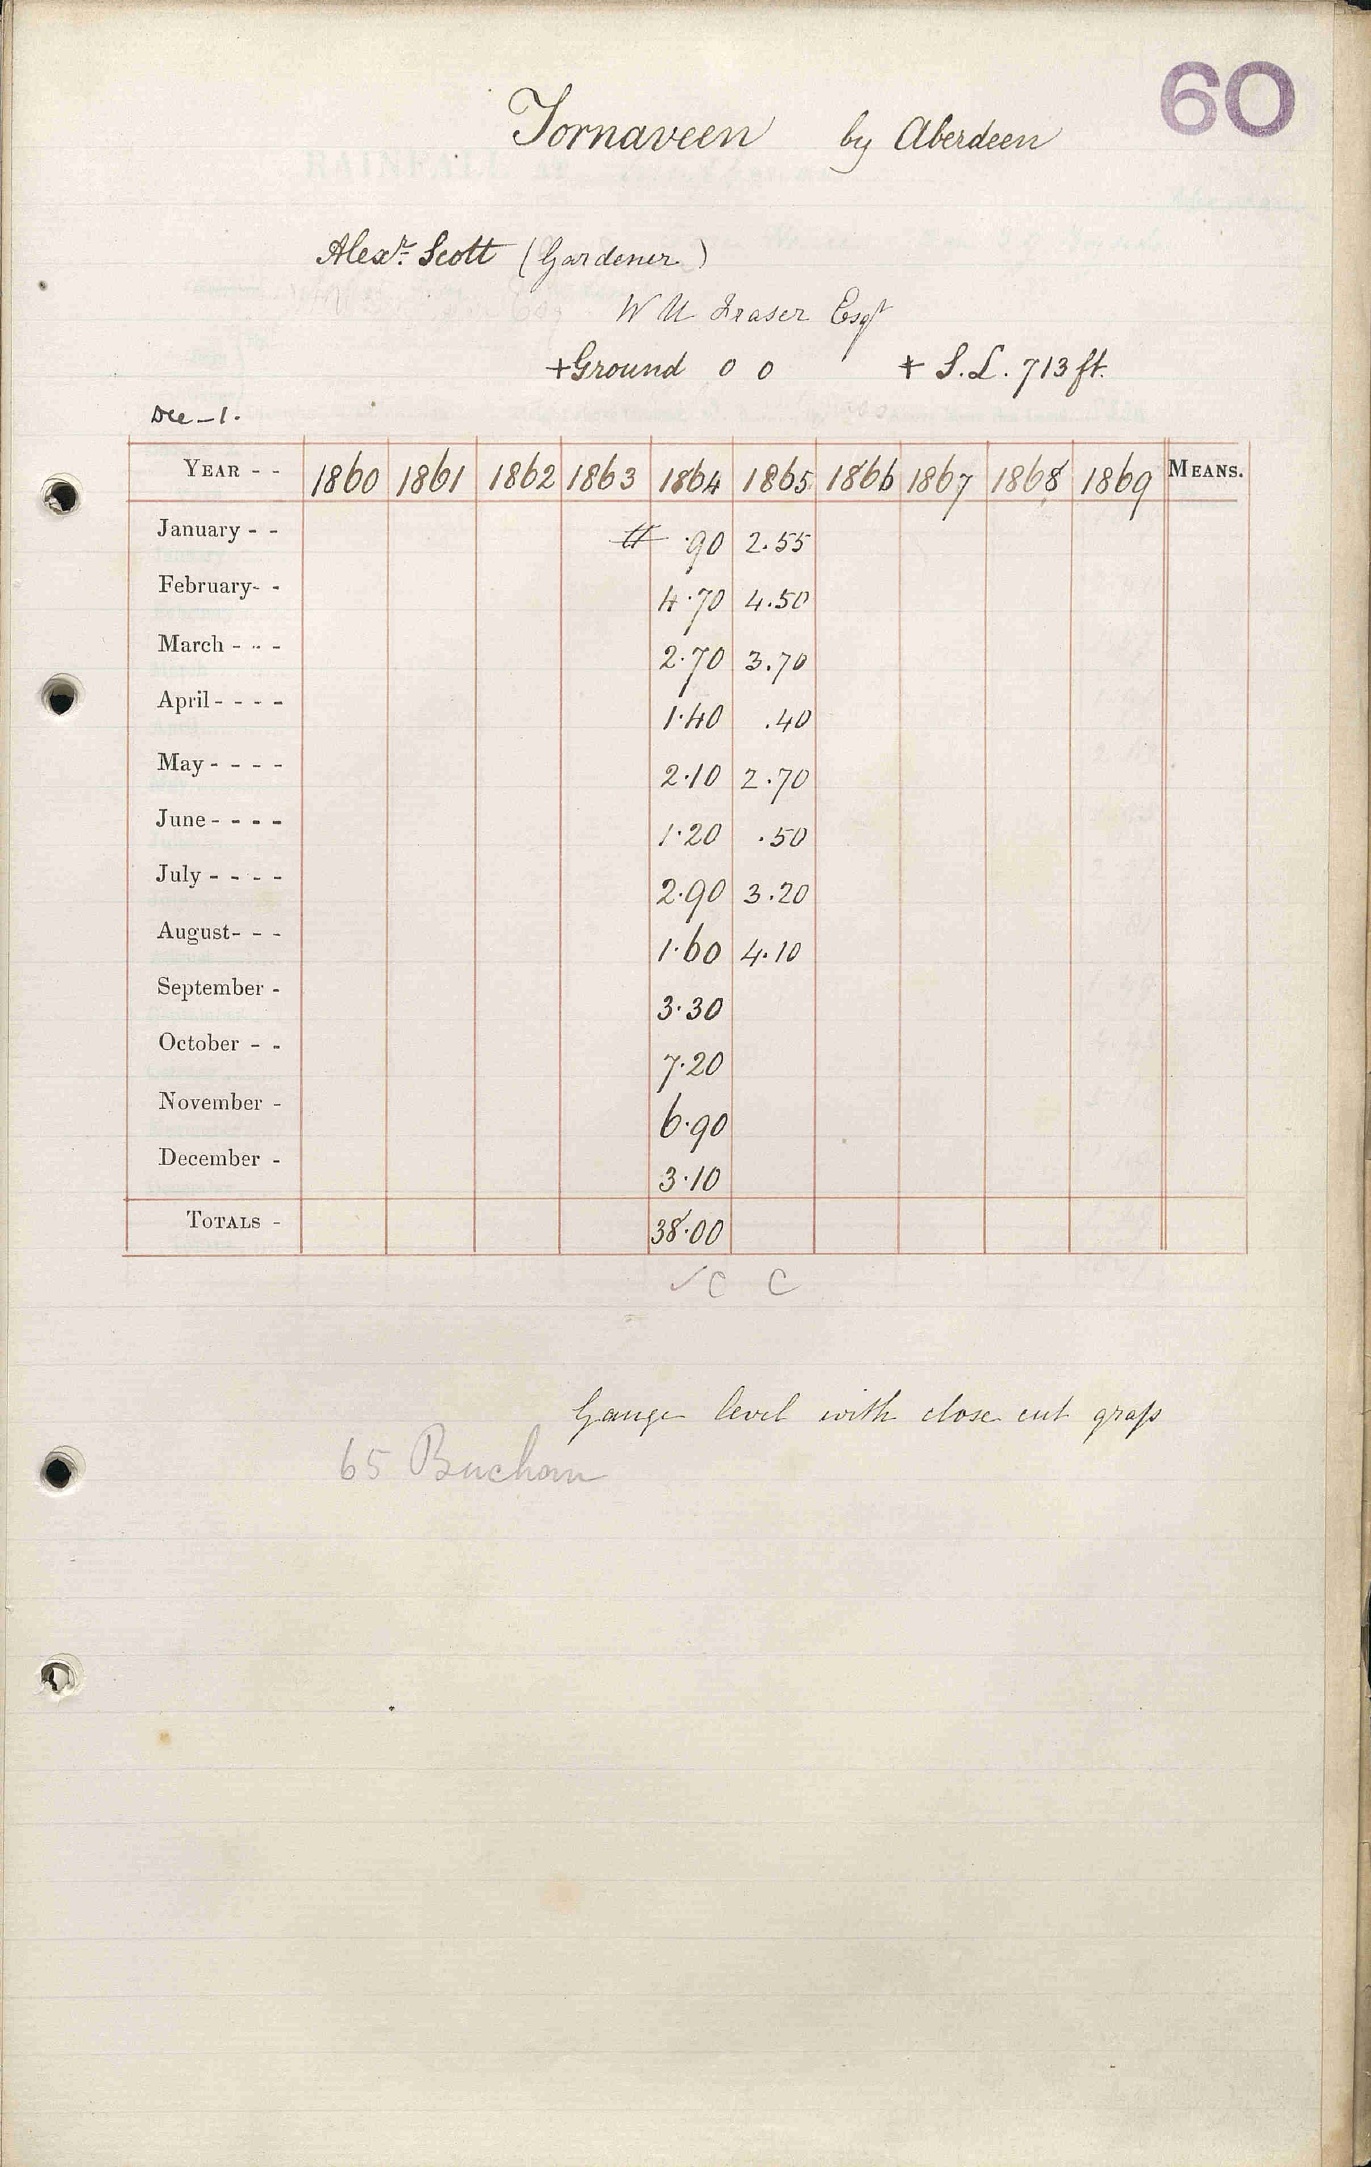 60
Tornaveen by Aberdeen
Alexr. Scott (Gardener)
W N Fraser Esqr
+Ground 0 0 + S.L. 713 ft.
Dec-1.
YEAR - - 1860 1861 1862 1863 1864 1865 1866 1867 1868 1869 MEANS.
January - - .90 2.55
February- - 4.70 4.50
March - - - 2.70 3.70
April - - - - 1.40 .40
May - - - - 2.10 2.70
June - - - - 1.20 .50
July - - - - 2.90 3.20
August- - - 1.60 4.10
September - 3.30
October - - 7.20
November - 6.90
December - 3.10
TOTALS - 38.00
✓C C
Gauge level with close cut grass
65 Buchan